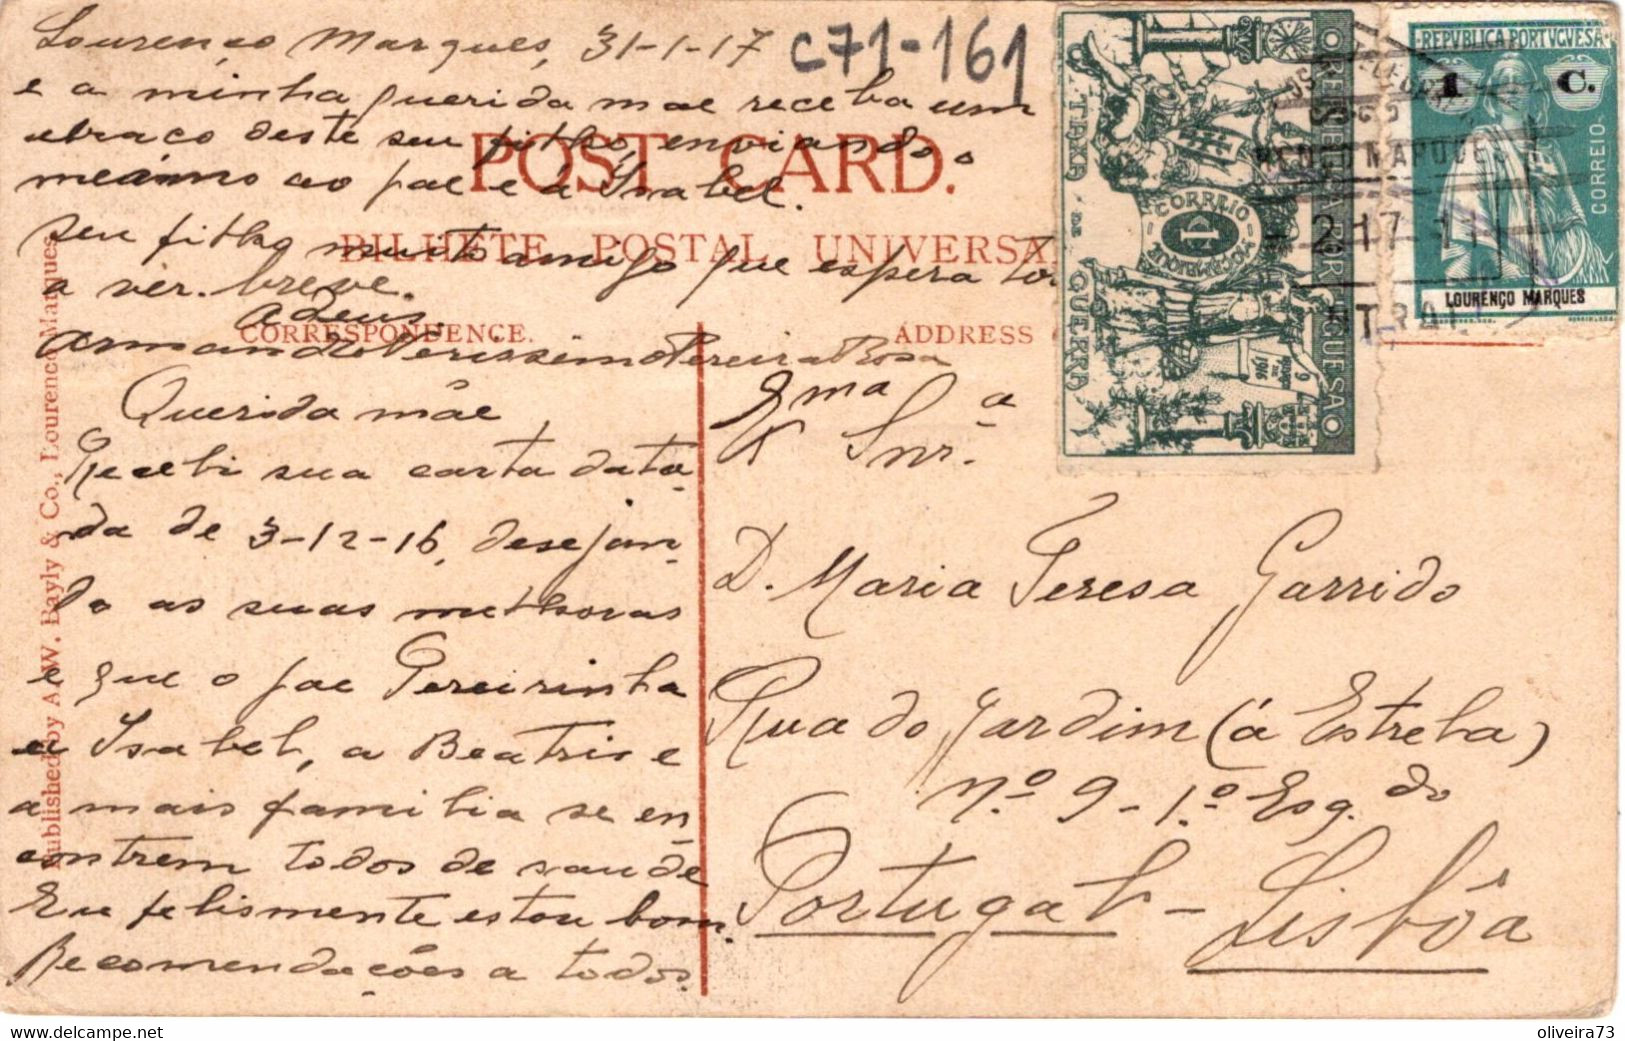 Lourenço Marques, 31-1-17
c71-161
e a minha querida mãe receba um
abraço deste seu filho, enviando o
mesmo ao pae e á Isabel.
seu filho muito amigo que espera tor
a ver. breve.
Adeus,
Armando Verissimo Pereira Rosa
POST CARD.
BILHETE POSTAL UNIVERSA
CORRESPONDENCE.
ADDRESS
Published by A. W. Bayly & Co., Lourenco Marques
Querida mãe
Recebi sua carta data-
da de 3-12-16, desejan-
do as suas melhoras
e que o pae Pereirinha
e Isabel, a Beatris e
a mais familia se en
contrem todos de saude
Eu felismente estou bom.
Recomendações a todos.
Exma Snr.a
D. Maria Teresa Garrido
Rua do Jardim (á Estrela)
n.º 9-1.º Esq.do
Portugal - Lisbôa
CORREIO
MOÇAMBIQUE
TAXA DE GUERRA
1916
REPVBLICA PORTVGVESA
1 C.
CORREIO
LOURENÇO MARQUES
2 17 11
delcampe.net
oliveira73